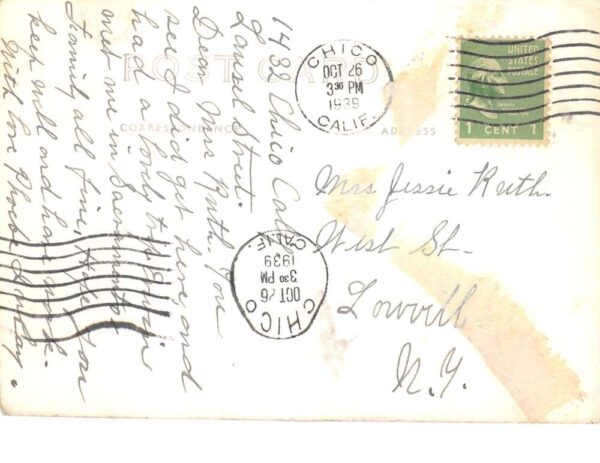 POST CARD
CORRESPONDENCE
ADDRESS
CHICO
OCT 26
3 30 PM
1939
CALIF.
UNITED
STATES
POSTAGE
1 CENT 1
Mrs Jessie Ruth.
West St.
Lowvill
N.Y.
1432 Chico Cal
Laurel Street.
Dear Mrs Ruth. You
see I did get here, and
had a lovely trip
met me in Sacramento
Family all fine, Hope you
keep well and have good
With love Phebe
CHICO
OCT 26
3 30 PM
1939
CALIF.